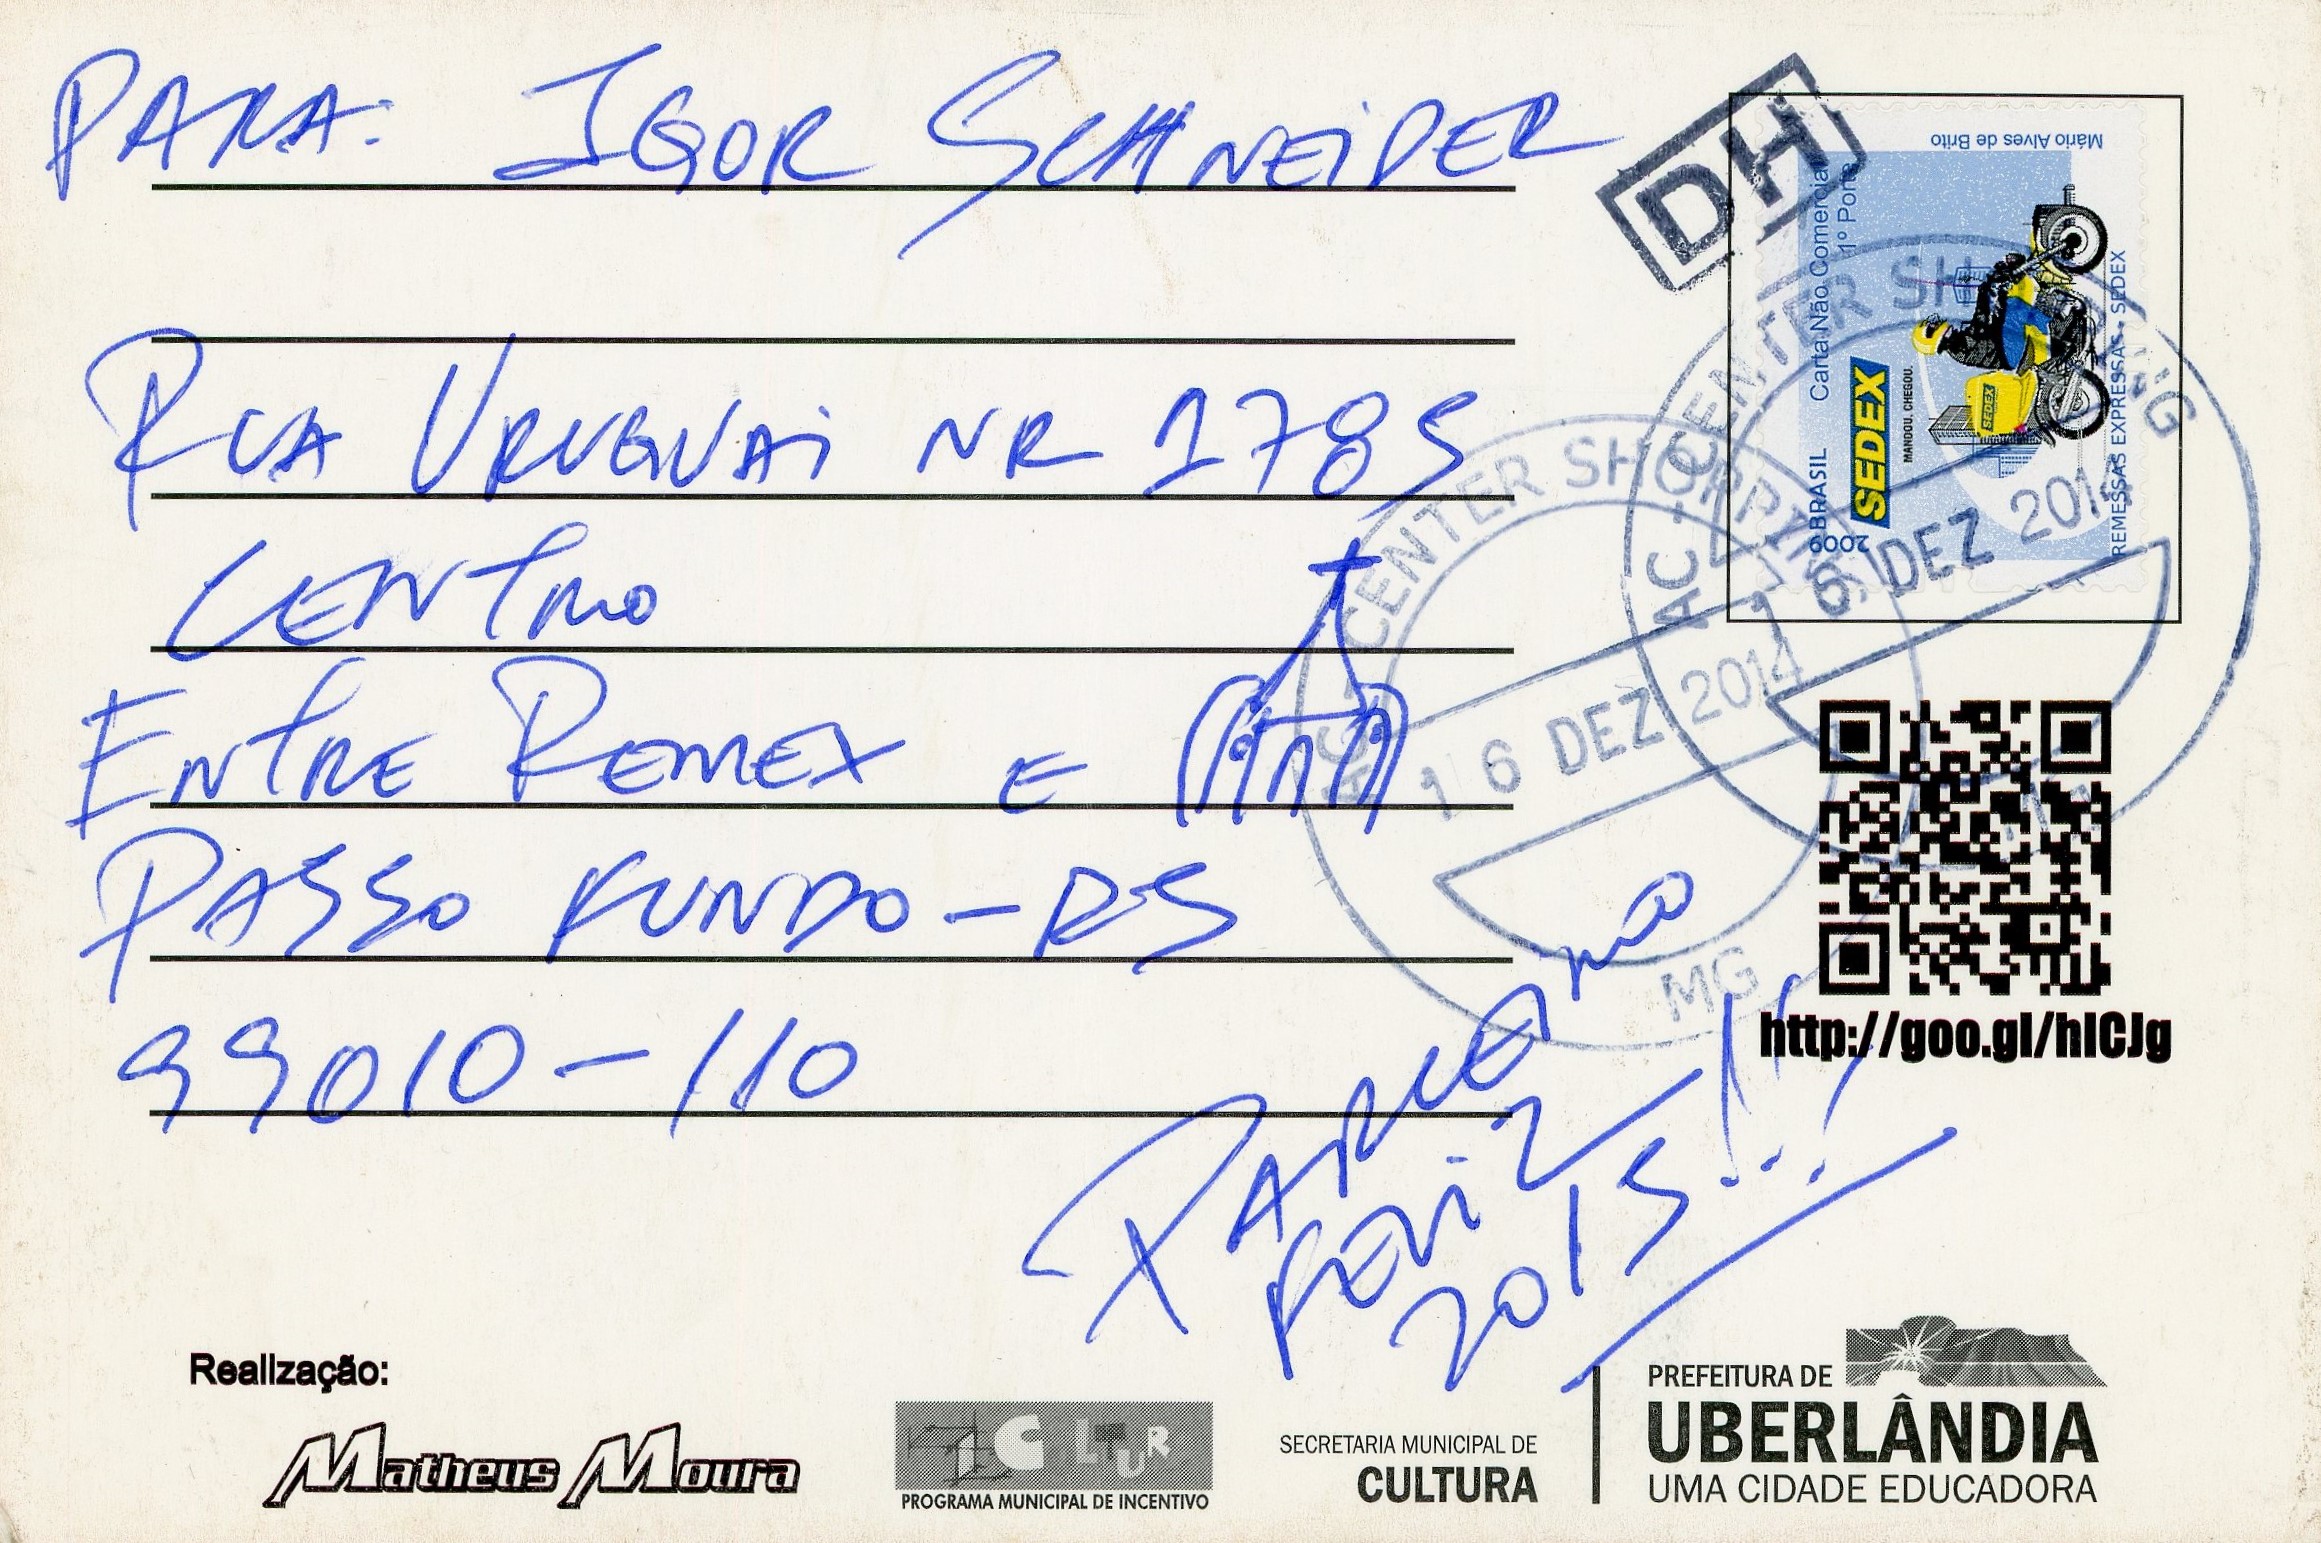 PARA: IGOR SCHNEIDER
RUA URUGUAI NR 1785
CENTRO
ENTRE REMEX E
PASSO FUNDO-RS
99010-110
FELIZ
2015!!!
DH
Mário Alves de Brito
BRASIL Carta Não Comercial
1º Porte
2009
SEDEX
MANDOU, CHEGOU.
SEDEX
REMESSAS EXPRESSAS - SEDEX
AC - CENTER SHOPPING
16 DEZ 2014
MG
AC - CENTER SHOPPING
16 DEZ 2014
MG
http://goo.gl/hICJg
Realização:
Matheus Moura
PROGRAMA MUNICIPAL DE INCENTIVO
SECRETARIA MUNICIPAL DE
CULTURA
PREFEITURA DE
UBERLÂNDIA
UMA CIDADE EDUCADORA